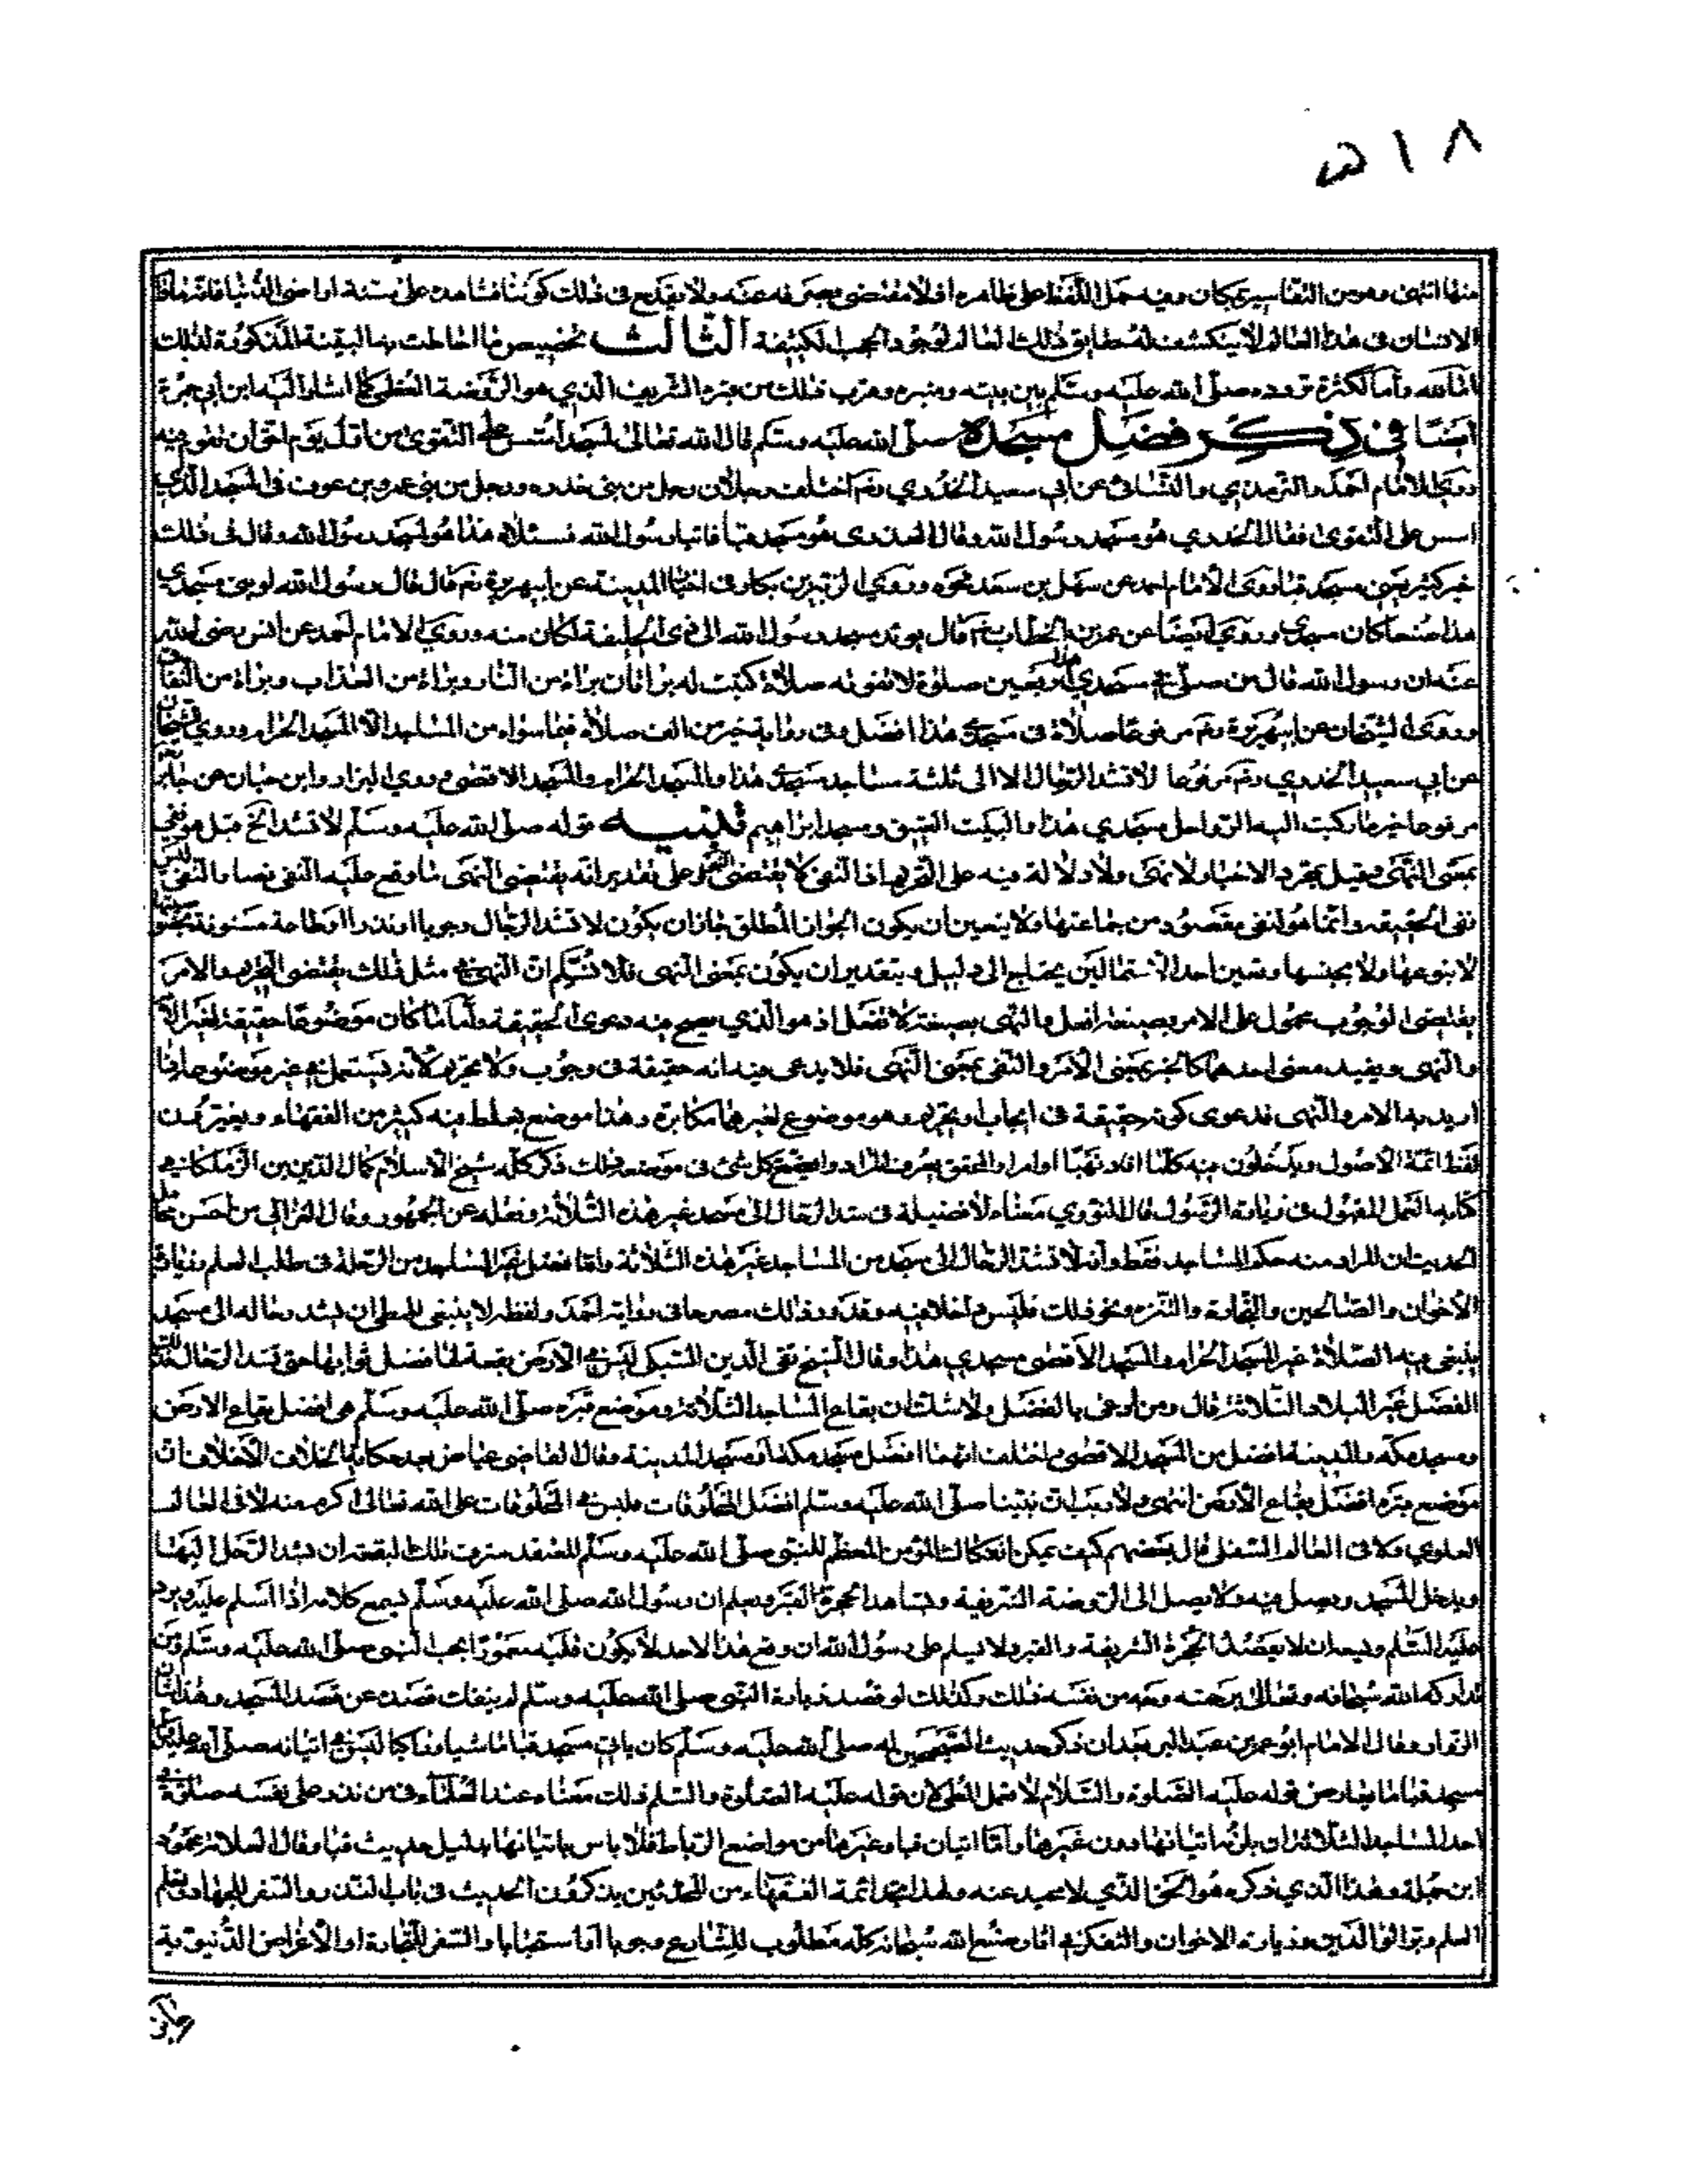 ٥١٨
منها انتهى وهو من التفاسير بمكان وفيه حمل اللفظ على ظاهره اذ لا مقتضى يصرفه عنه ولا يقدح في ذلك كوننا نشاهده على نسبة اراضي الدنيا فانه مادام
الانسان في هذا العالم لا ينكشف له حقايق ذلك العالم لوجود الحجب الكثيفة الثالث تخصيص ما احاطت به البقعة المذكورة لذلك
اما لكثرة تردده صلى الله عليه وسلم بين بيته ومنبره وقرب ذلك من قبره الشريف الذي هو الروضة العظمى كما اشار اليه ابن ابي جمرة
ايضا في ذكر فضل مسجده صلى الله عليه وسلم قال الله تعالى لمسجد أسس على التقوى من اول يوم احق ان تقوم فيه
روى الامام احمد والترمذي والنسائي عن ابي سعيد الخدري رضم اختلف رجلان رجل من بني خدره ورجل من بني عمرو بن عوف في المسجد الذي
اسس على التقوى فقال الخدري هو مسجد رسول الله وقال العمري هو مسجد قبا فاتيا رسول الله فسئلاه هذا هو المسجد رسول الله وقال في ذلك
خير كثير يعني مسجد قبا وروى الامام احمد عن سهل بن سعد نحوه وروى الزبير بن بكار في اخبار المدينة عن ابي هريرة رضم قال قال رسول الله لو بنى مسجدي
هذا صنعا كان مسجدي وروى ايضا عن عمر بن الخطاب رضم قال لو مد مسجد رسول الله الى ذي الحليفة لكان منه وروى الامام احمد عن انس رضي الله
عنه ان رسول الله قال من صلى في مسجدي هذا اربعين صلوة لا تفوته صلاة كتبت له براءتان براءة من النار وبراءة من العذاب وبراءة من النفاق
وروى الشيخان عن ابي هريرة رضم مرفوعا صلاة في مسجدي هذا افضل وفي رواية خير من الف صلاة فيما سواه من المساجد الا المسجد الحرام وروى الشيخان
عن ابي سعيد الخدري رضم مرفوعا لا تشد الرحال الا الى ثلثة مساجد مسجدي هذا والمسجد الحرام والمسجد الاقصى وروى البزار وابن حبان عن جابر
مرفوعا خير ما ركبت اليه الرواحل مسجدي هذا والبيت العتيق ومسجد ابراهيم تنبيه قوله صلى الله عليه وسلم لا تشد الخ قيل هو نفي
بمعنى النهي وقيل بمجرد الاخبار لا نهي ولا دلالة فيه على التحريم اذ النفي لا يقتضي النهي وعلى تقدير انه يقتضي النهي فما وقع عليه النفي
نفي الحقيقة وانما هو لنفي مقصود من جماعتها ولا يتعين ان يكون الجواز المطلق فجاز ان يكون لا تشد الرحال وجوبا او نذرا او طاعة مسنونة
لا بنوعها ولا بجنسها وتعين احد الاحتمالين يحتاج الى دليل وبتقدير ان يكون بمعنى النهي فلا نسلم ان النهي في مثل ذلك يقتضي التحريم والامر
يقتضي الوجوب محمول على الامر بصيغة افعل والنهي بصيغة لا تفعل اذ هو الذي يصح فيه دعوى الحقيقة واما ما كان موضوعا حقيقة لغير الامر
والنهي ويفيد معنى احدهما كالخبر بمعنى الامر والنفي بمعنى النهي فلا يدعى فيه انه حقيقة في وجوب ولا تحريم لانه يستعمل في غير موضوعه اذا
اريد به الامر والنهي فدعوى كونه حقيقة في ايجاب او تحريم وهو موضوع لغيرهما مكابرة وهذا موضع يغلط فيه كثير من الفقهاء ويغتر بمن
لفظ ائمة الاصول ويدخلون فيه كلما افاد نهيا او امرا والمحقق يعرف المراد ويضع كل شئ في موضعه ذلك ذكر كله شيخ الاسلام كمال الدين بن الزملكاني في
كتابه العمل المقبول في زيارة الرسول قال النووي معناه لا فضيلة في شد الرحال الى مسجد غير هذه الثلاثة ونقله عن الجمهور وقال العراقي من احسن محامل
الحديث ان المراد منه حكم المساجد فقط وانه لا تشد الرحال الى مسجد من المساجد غير هذه الثلاثة واما قصد غير المساجد من الرحلة في طلب العلم وزيارة
الاخوان والصالحين والتجارة والتنزه ونحو ذلك فليس داخلا فيه وقد ورد ذلك مصرحا في رواية احمد ولفظه لا ينبغي للمطي ان تشد رحاله الى مسجد
يبتغى فيه الصلاة غير المسجد الحرام والمسجد الاقصى ومسجدي هذا وقال الشيخ تقي الدين السبكي ليس في الارض بقعة لها فضل ثوابها حتى تشد الرحال
الفضل غير البلاد الثلاثة قال ومن ادعى بالفضل ولا شك ان بقاع المساجد الثلاثة وموضع قبره صلى الله عليه وسلم هي افضل بقاع الارض
ومسجد مكة والمدينة افضل من المسجد الاقصى واختلف ايهما افضل مسجد مكة او مسجد المدينة وقال القاضي عياض بعد حكاية الخلاف لا خلاف ان
موضع قبره افضل بقاع الارض انتهى ولا ريب ان نبينا صلى الله عليه وسلم افضل المخلوقات فليس في المخلوقات على الله تعالى اكرم منه لا في العالم
العلوي ولا في العالم السفلي قال بعضهم كيف يمكن انفكاك المؤمن المعظم للنبي صلى الله عليه وسلم المعتقد شرف تلك البقعة ان يشد الرحل اليها
ويدخل المسجد ويصل فيه ولا يصل الى الروضة الشريفة ويشاهد الحجرة القبر ويعلم ان رسول الله صلى الله عليه وسلم يسمع كلامه اذا سلم عليه ويرد
عليه السلام ويسعه ان لا يقصد الحجرة الشريفة والقبر ولا يسلم على رسول الله ان وقع هذا لاحد لا يكون قلبه معمورا بحب النبي صلى الله عليه وسلم ومن
تداركه الله سبحانه وتعالى برحمته وجد من نفسه ذلك وكذلك لو قصد زيارة النبي صلى الله عليه وسلم لم ينفك قصده عن قصد المسجد وهذا شان
الزوار وقال الامام ابو عمر بن عبد البر بعد ان ذكر حديث الصحيحين انه صلى الله عليه وسلم كان ياتي مسجد قبا ماشيا وراكبا ليس في اتيانه صلى الله عليه وسلم
مسجد قبا ما يعارض قوله عليه الصلوة والسلام لا تعمل المطي لان قوله عليه الصلوة والسلام ذلك معناه عند العلماء في من نذر على نفسه صلوة في
احد المساجد الثلاثة ان يلزمه اتيانها دون غيرها واما اتيان قبا وغيرها من مواضع الرباط فلا باس باتيانها بدليل حديث قبا وقال العلامة محمود
ابن جملة وهذا الذي ذكره هو الحق الذي لا محيد عنه ولهذا تجد ائمة الفقهاء من المحدثين يذكرون الحديث في باب النذر والسفر للجهاد وتعلم
العلم وبر الوالدين وزيارة الاخوان والتفكر في اثار صنع الله سبحانه كله مطلوب للشارع وجوبا او استحبابا والسفر للتجارة او الاغراض الدنيوية